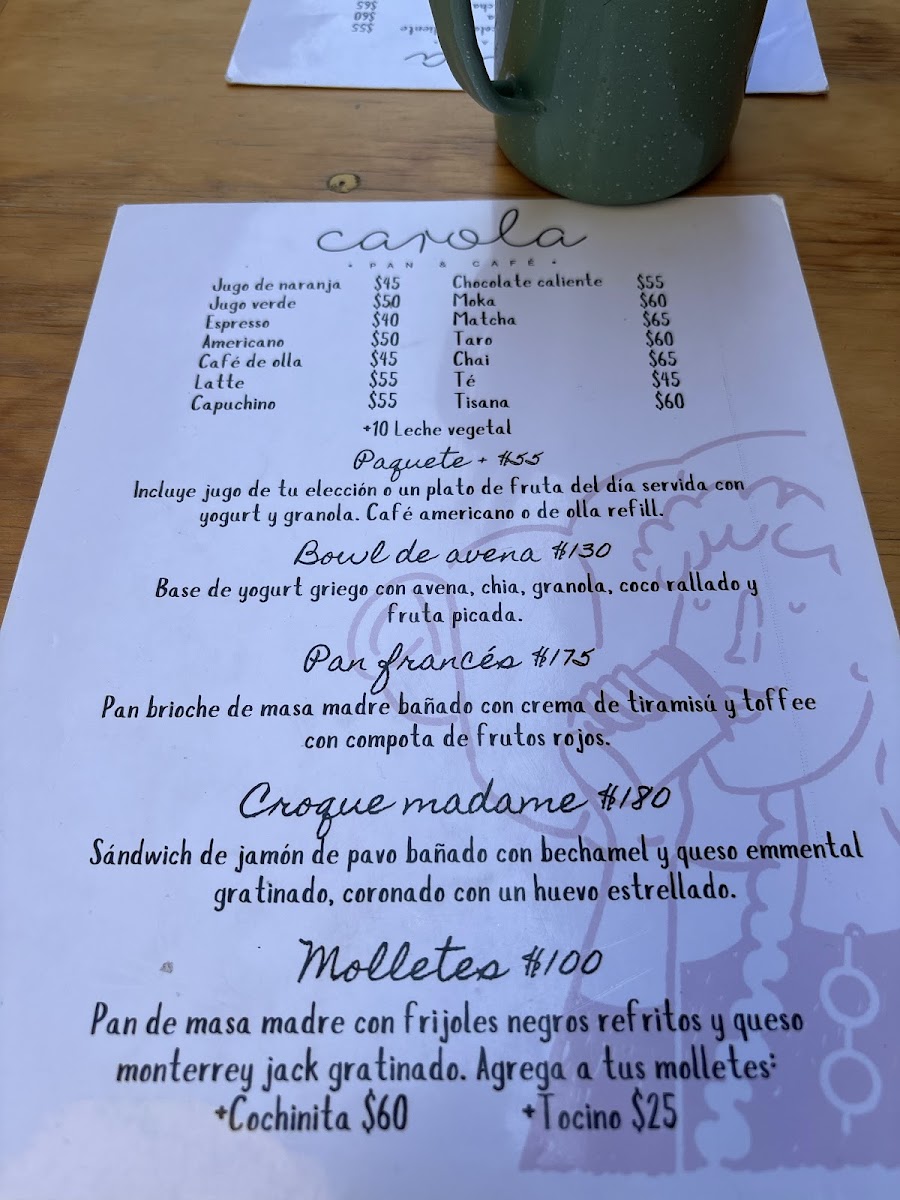 $65
$60
$55
carola
• PAN & CAFÉ •
Jugo de naranja $45 Chocolate caliente $55
Jugo verde $50 Moka $60
Espresso $40 Matcha $65
Americano $50 Taro $60
Café de olla $45 Chai $65
Latte $55 Té $45
Capuchino $55 Tisana $60
+10 Leche vegetal
Paquete + $55
Incluye jugo de tu elección o un plato de fruta del día servida con
yogurt y granola. Café americano o de olla refill.
Bowl de avena $130
Base de yogurt griego con avena, chia, granola, coco rallado y
fruta picada.
Pan francés $175
Pan brioche de masa madre bañado con crema de tiramisú y toffee
con compota de frutos rojos.
Croque madame $180
Sándwich de jamón de pavo bañado con bechamel y queso emmental
gratinado, coronado con un huevo estrellado.
Molletes $100
Pan de masa madre con frijoles negros refritos y queso
monterrey jack gratinado. Agrega a tus molletes:
+Cochinita $60 +Tocino $25